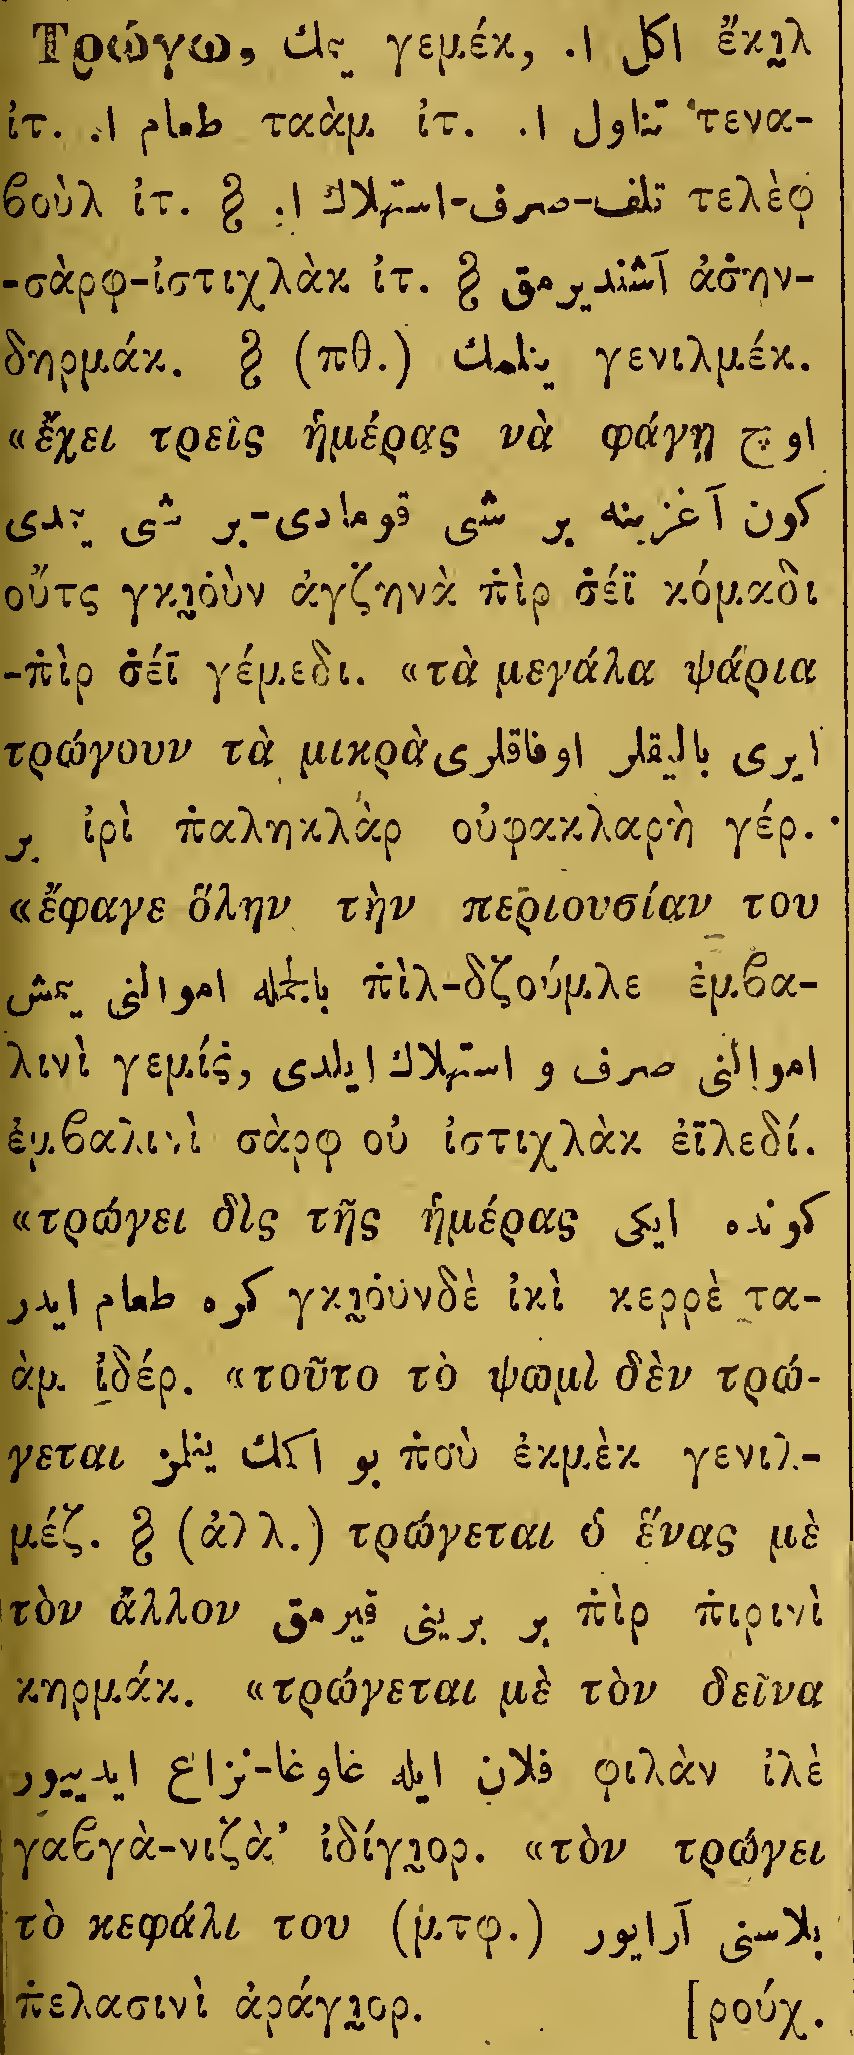 Τρώγω, يمك γεμέκ, اكل ا. ἔκι̯λ
ἰτ. طعام ا. ταὰμ ἰτ. تناول ا. τενα-
βοὺλ ἰτ. § تلف-صرف-استهلاك ا. τελὲφ
-σὰρφ-ἰστιχλὰκ ἰτ. § آشنديرمق ἀσ̇ην-
δηρμάκ. § (πθ.) ينلمك γενιλμέκ.
«ἔχει τρεῖς ἡμέρας νὰ φάγῃ اوچ
كون آغزينه بر شى قومادى-بر شى يمدى
οὔτς γκι̯ὸ̇ὺν ἀγζηνὰ π̇ὶρ σ̇έϊ κόμαδι
-π̇ὶρ σ̇έϊ γέμεδι. «τὰ μεγάλα ψάρια
τρώγουν τὰ μικρὰ ايرى باليقلر اوفاقلرى
ير ἰρὶ π̇αληκλὰρ οὐφακλαρὴ γέρ.
«ἔφαγε ὅλην τὴν περιουσίαν του
بالجمله اموالنى يمش π̇ὶλ-δζούμλε ἐμβα-
λινὶ γεμίσ̇, اموالنى صرف و استهلاك ايلدى
ἐμβαλινὶ σὰρφ οὐ ἰστιχλὰκ ἐϊλεδί.
«τρώγει δὶς τῆς ἡμέρας كونده ايكى
كره طعام ايدر γκι̯ὸ̇ὺνδὲ ἰκὶ κερρὲ τα-
ὰμ ἰδέρ. «τοῦτο τὸ ψωμὶ δὲν τρώ-
γεται بو اكمك ينلمز π̇οὺ ἐκμὲκ γενιλ-
μέζ. § (ἀλλ.) τρώγεται ὁ ἕνας μὲ
τὸν ἄλλον بر برينى قيرمق π̇ὶρ π̇ιρινὶ
κηρμάκ. «τρώγεται μὲ τὸν δεῖνα
فلان ايله غاوغا-نزاع ايدييور φιλὰν ἰλὲ
γαβγὰ-νιζὰ’ ἰδίγι̯ορ. «τὸν τρώγει
τὸ κεφάλι του (μτφ.) بلاسنى آرايور
π̇ελασινὶ ἀράγι̯ορ. [ρούχ.